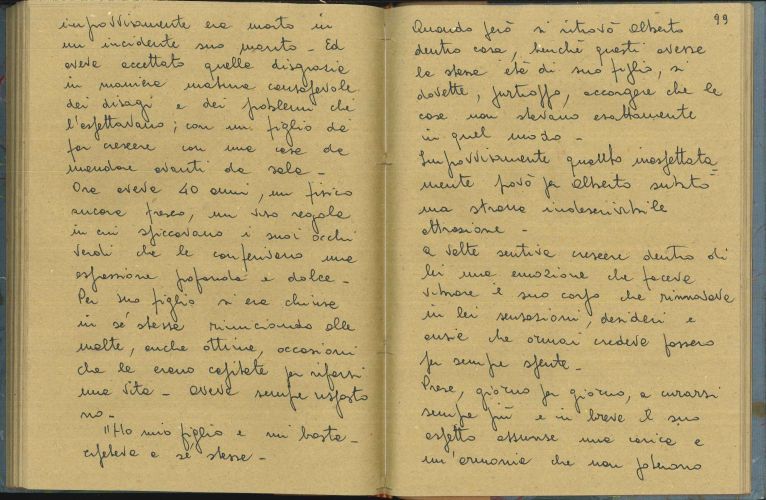 improvvisamente era morto in
un incidente suo marito - Ed
aveva accettato quella disgrazia
in maniera matura consapevole
dei disagi e dei problemi che
l'aspettavano; con un figlio da
far crescere con una casa da
mandare avanti da sola -
Ora aveva 40 anni, un fisico
ancora fresco, un viso regolare
in cui spiccavano i suoi occhi
verdi che le conferivano una
espressione profonda e dolce -
Per suo figlio si era chiusa
in sé stessa rinunciando alle
molte, anche ottime, occasioni
che le erano capitate per rifarsi
una vita - aveva sempre risposto
no -
"Ho mio figlio e mi basta -
ripeteva a sé stessa -
99
Quando però si ritrovò Alberto
dentro casa, benché questi avesse
la stessa età di suo figlio, si
dovette, purtroppo, accorgere che le
cose non stavano esattamente
in quel modo -
Improvvisamente quanto inaspettata-
mente provò per Alberto subito
una strana indescrivibile
attrazione -
a volte sentiva crescere dentro di
lei una emozione che faceva
vibrare il suo corpo che rinnovava
in lei sensazioni, desideri e
ansie che ormai credeva fossero
per sempre spente -
Prese, giorno per giorno, a curarsi
sempre più e in breve il suo
aspetto assunse una carica e
un'armonia che non potevano